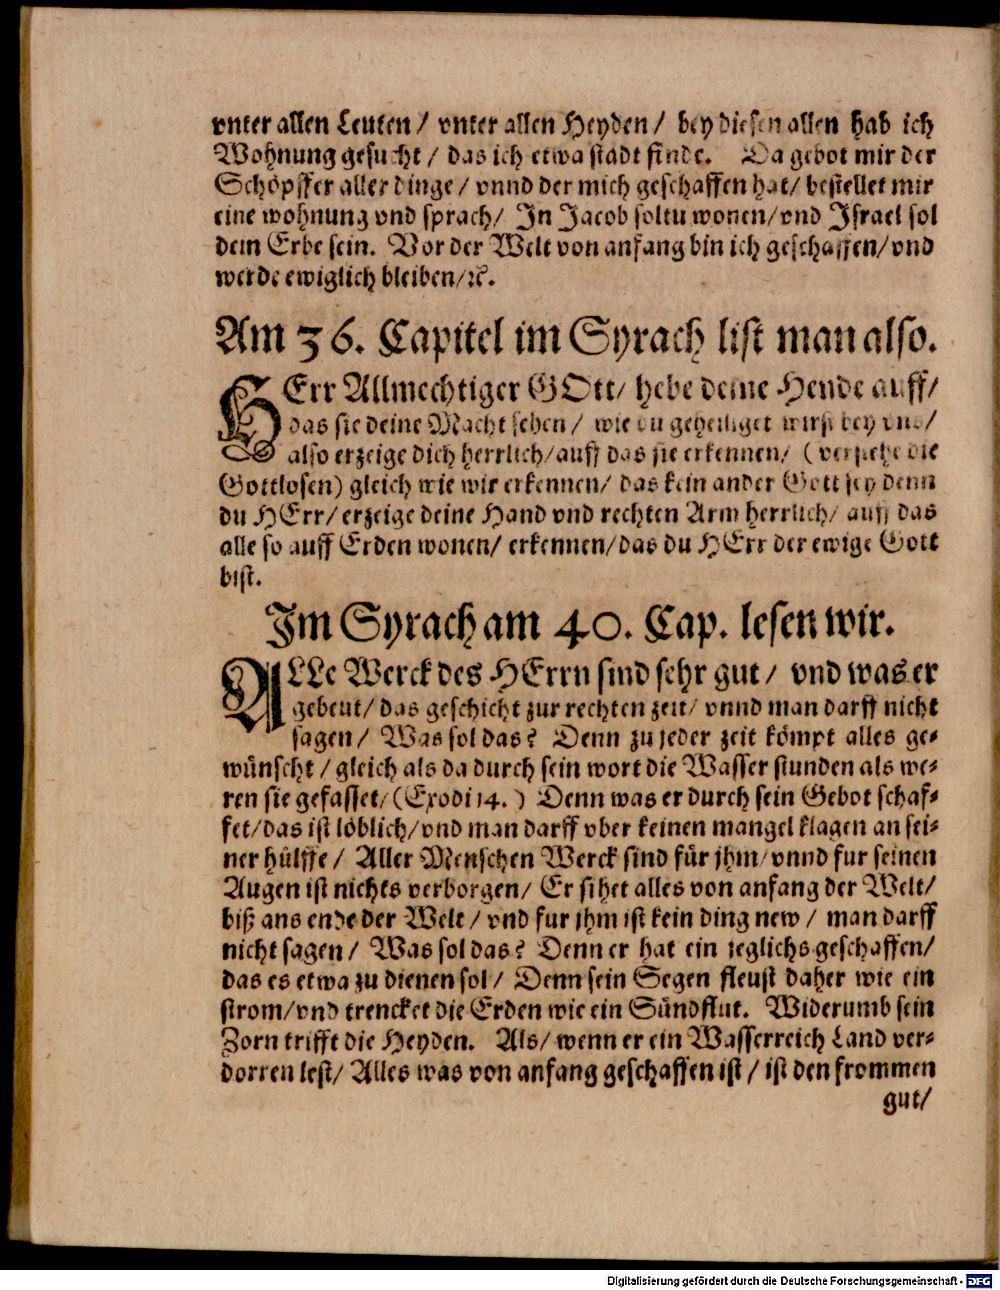 vnter allen Leuten / vnter allen Heyden / bey diesen allen hab ich
Wohnung gesucht / das ich etwa stadt finde. Da gebot mir der
Schöpffer aller dinge / vnnd der mich geschaffen hat / bestellet mir
eine wohnung vnd sprach / In Jacob soltu wonen / vnd Israel sol
dein Erbe sein. Vor der Welt von anfang bin ich geschaffen / vnd
werde ewiglich bleiben / ꝛc.
Am 36. Capitel im Syrach list man also.
HErr Allmechtiger GOtt / hebe deine Hende auff /
das sie deine Macht sehen / wie du geheiliget wirst bey vns /
also erzeige dich herrlich / auff das sie erkennen / ( verstehe die
Gottlosen) gleich wie wir erkennen / das kein ander Gott sey denn
du HErr / erzeige deine Hand vnd rechten Arm herrlich / auff das
alle so auff Erden wonen / erkennen / das du HErr der ewige Gott
bist.
Im Syrach am 40. Cap. lesen wir.
ALLe Werck des HErrn sind sehr gut / vnd was er
gebeut / das geschicht zur rechten zeit / vnnd man darff nicht
sagen / Was sol das? Denn zu jeder zeit kömpt alles ge⸗
wünscht / gleich als da durch sein wort die Wasser stunden als we⸗
ren sie gefasset / (Exodi 14. ) Denn was er durch sein Gebot schaf⸗
fet / das ist löblich / vnd man darff vber keinen mangel klagen an sei⸗
ner hülffe / Aller Menschen Werck sind für jhm / vnnd fur seinen
Augen ist nichts verborgen / Er sihet alles von anfang der Welt /
biß ans ende der Welt / vnd fur jhm ist kein ding new / man darff
nicht sagen / Was sol das? Denn er hat ein jeglichs geschaffen /
das es etwa zu dienen sol / Denn sein Segen fleust daher wie ein
strom / vnd trencket die Erden wie ein Sündflut. Widerumb sein
Zorn trifft die Heyden. Als / wenn er ein Wasserreich Land ver⸗
dorren lest / Alles was von anfang geschaffen ist / ist den frommen
gut /
Digitalisierung gefördert durch die Deutsche Forschungsgemeinschaft - DFG